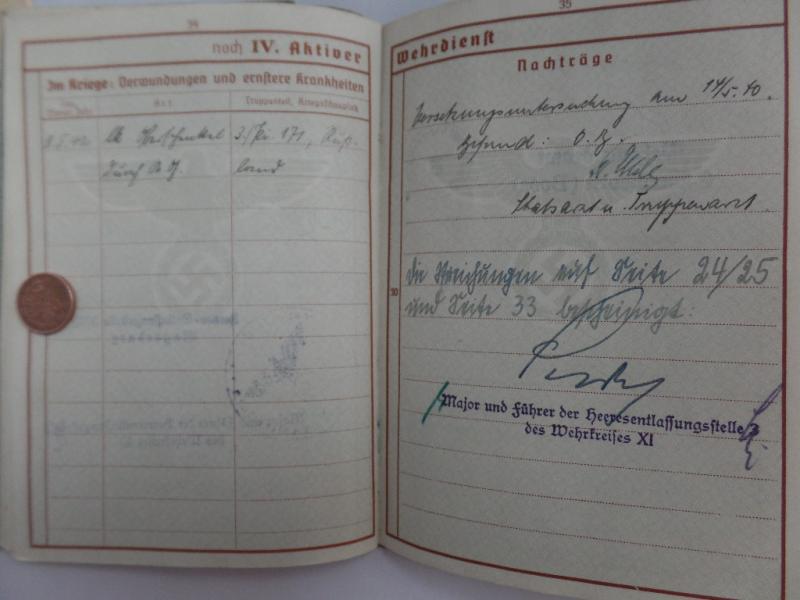 34
noch IV. Aktiver
Im Kriege: Verwundungen und ernstere Krankheiten
Art
Truppenteil, Kriegsschauplatz
Oberschenkel 3./Pi. 171, Ruß-
durch A.G. land
35
Wehrdienst
Nachträge
Versetzungsuntersuchung am 14/5.40.
Befund: o. B.
Stabsarzt u. Truppenarzt.
Die Streichungen auf Seite 24/25
und Seite 33 bescheinigt:
10
Major und Führer der Heeresentlassungsstelle 3
des Wehrkreises XI